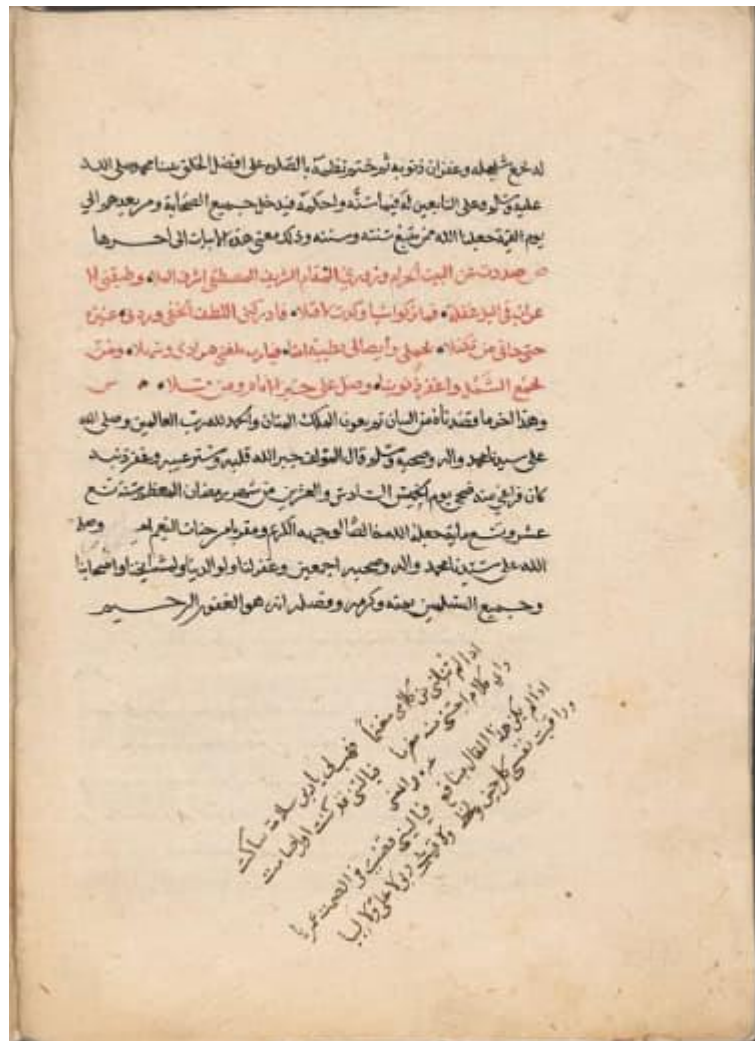 له لجمع شمله وغفران ذنوبه ثم ختم نظمه بالصلاة على افضل الخلق نبينا محمد صلى الله
عليه وسلم وعلى التابعين له فيما سنه واحكمه فيدخل جميع الصحابة ومن بعدهم الى
يوم القيمة جعلنا الله ممن يتبع سنته وذلك معنى هذه الابيات الى اخرها
ص صددت عن البيت الحرام وزورتي المقام الشريف المصطفى اشرف الملا وطبقني الا
عراب في الليل غفلة فما تركوا شيا وكدت لاقتلا فادركني اللطف الخفي وردني عنيزة
حتى جاني من تكفلا بحملي وايصالي لطيبة امنا فيارب بلغني مرادي وسهلا ومن
بجمع الشمل واغفر ذنوبنا وصل على خير الانام ومن تلا ش
وهذا اخر ما قصدناه من البيان بعون الملك المنان والحمد لله رب العالمين وصلى الله
على سيدنا محمد واله وصحبه وسلم قال المؤلف جبر الله قلبه وستر عيبه وغفر ذنبه
كان فراغي منه ضحى يوم الخميس السادس والعشرين من شهر رمضان المعظم سنة تسع
عشر وتسع ماية جعله الله خالصا لوجهه الكريم ومقربا من جنات النعيم وصلى
الله على سيدنا محمد واله وصحبه اجمعين وغفر لنا ولوالدينا ولمشايخنا ولاصحابنا
وجميع المسلمين بمنه وكرمه وفضله انه هو الغفور الرحيم
اذا لم تنلني من كلامي مغنما فهب لي يا رب سلامة ساكت
واي كلام اجتني منه مغرما فياليتني قد كنت اول صامت
غيره
اذا لم يكن هذا المقال بنافع فياليتني قضيت في الصمت عمريا
وراقبت نفسي كل حين ولحظة ولا لي